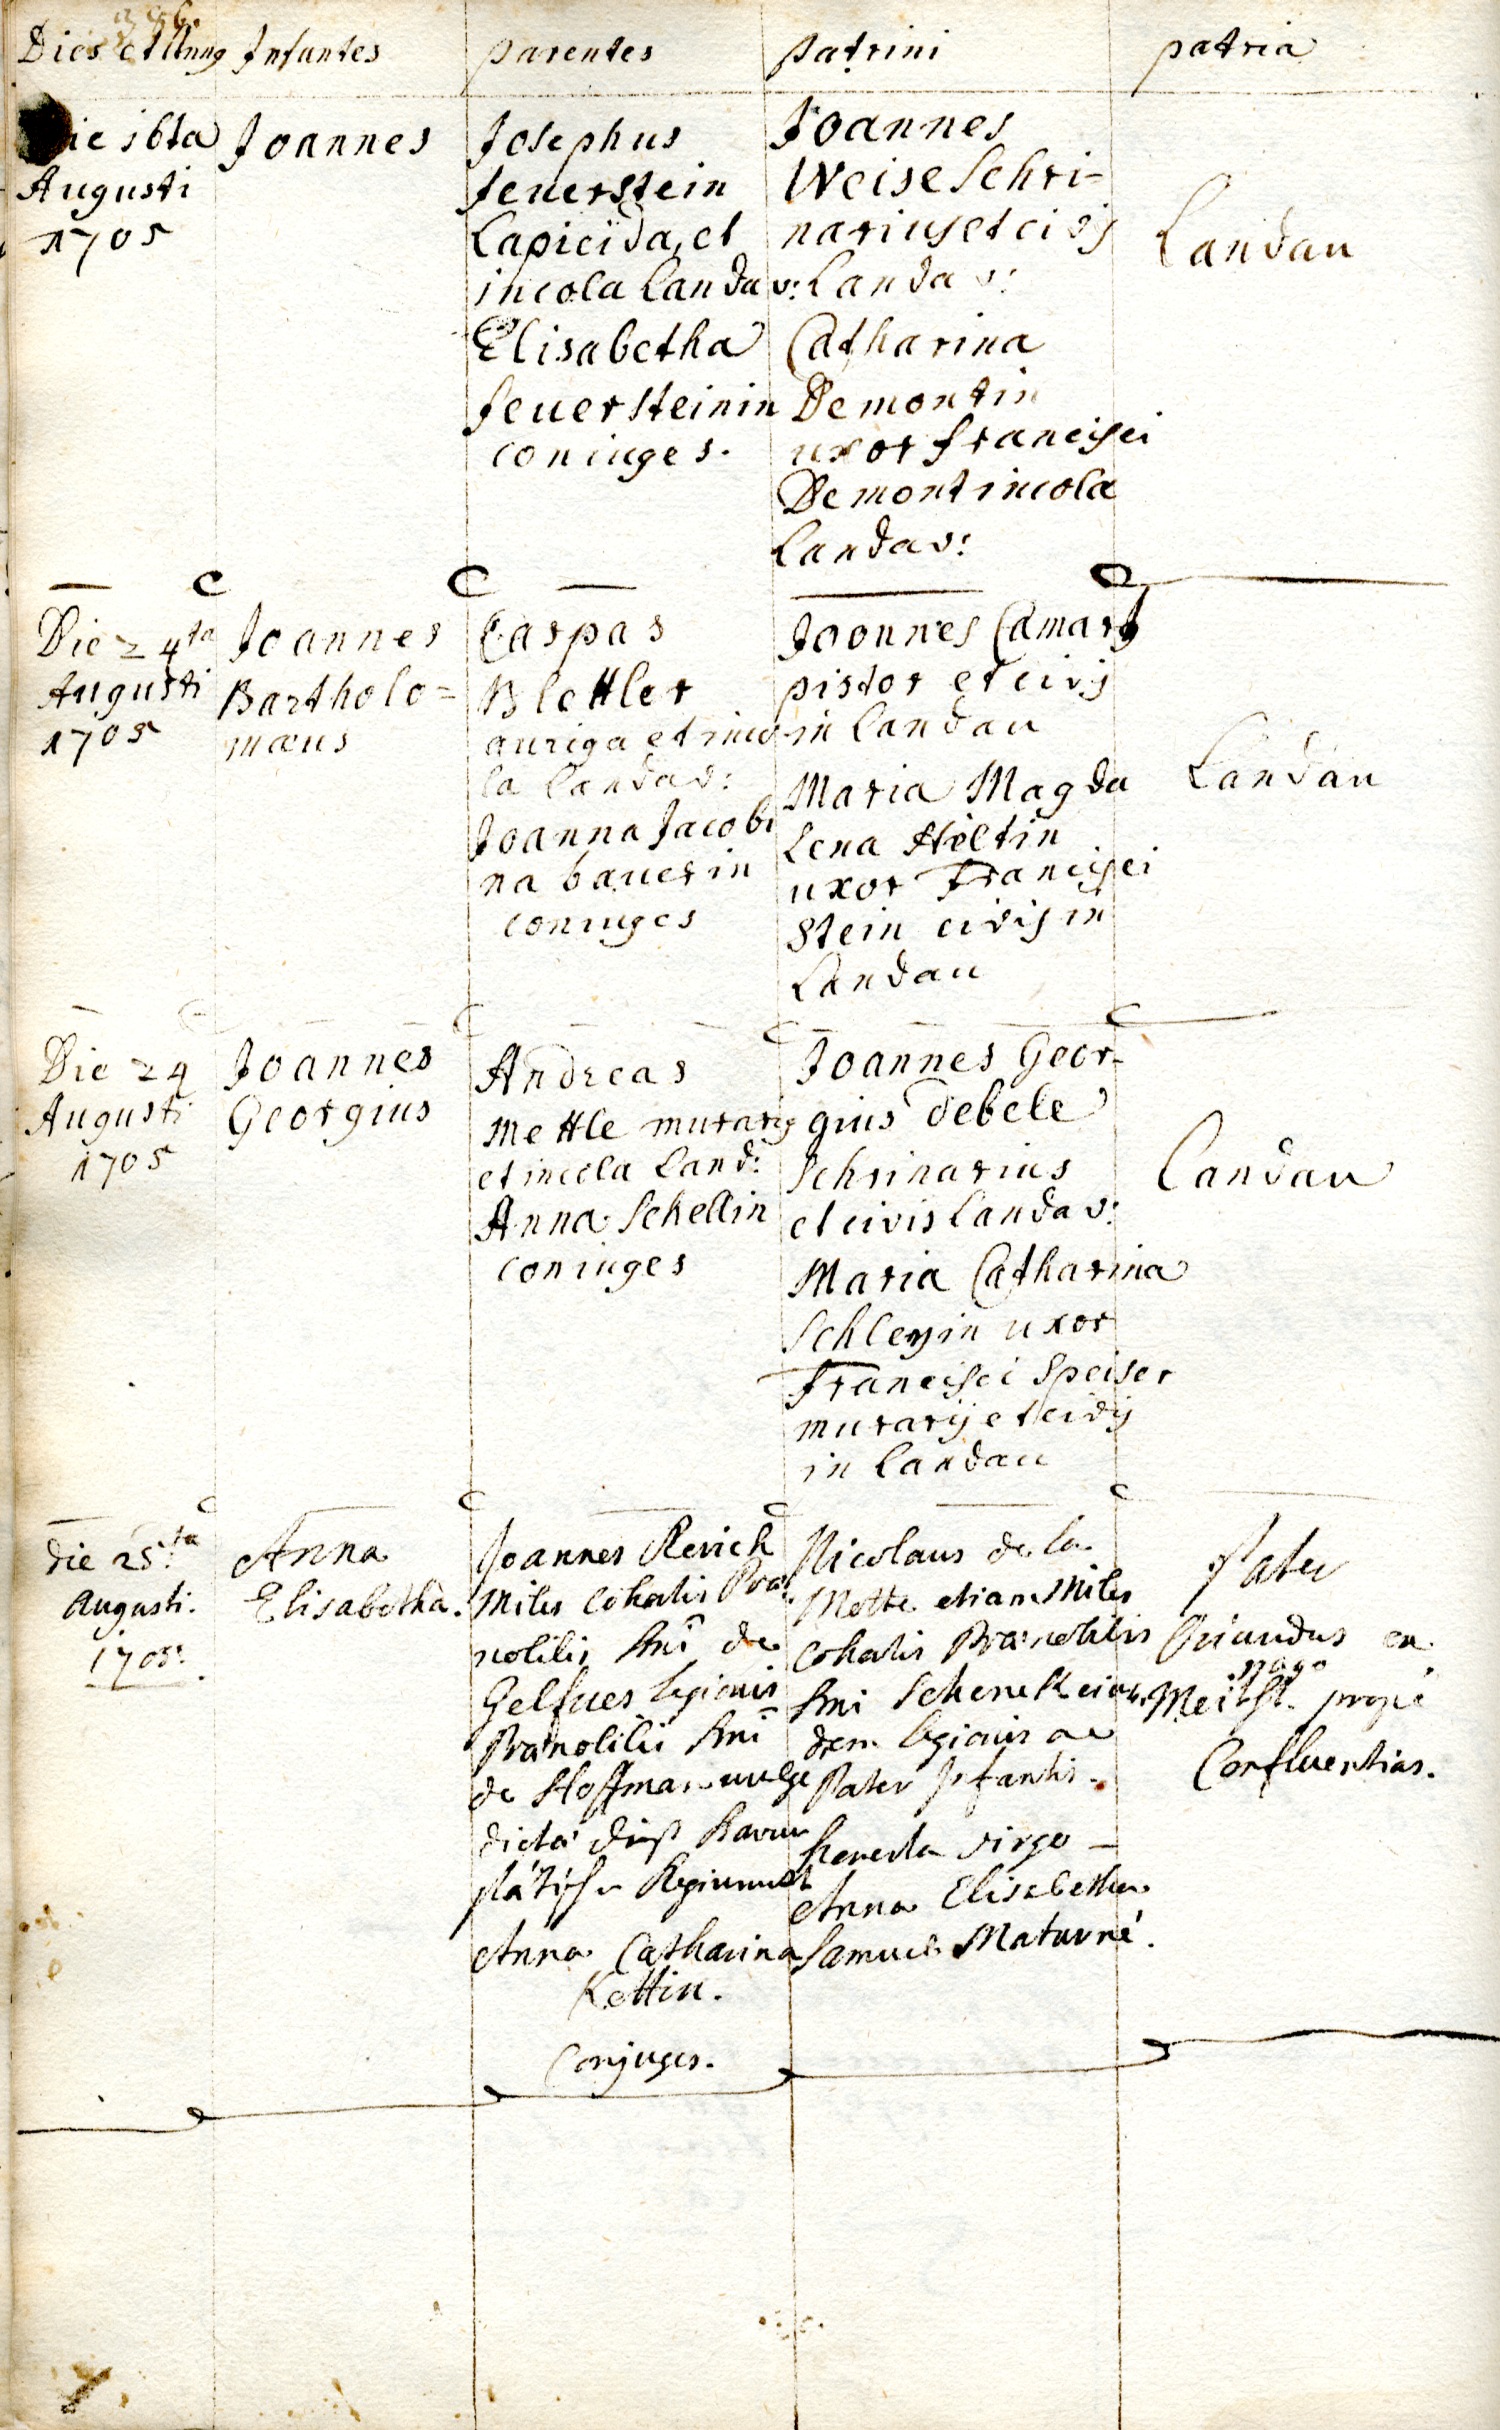 Dies et Annus Infantes parentes patrini patria
Die 16ta
Augusti
1705
Joannes
Josephus
feuerstein
Lapicida, et
incola Landav:
Elisabetha
feuersteinin
coniuges.
Joannes
Weise Schri-
narius et civis
Landav:
Catharina
Demontin
uxor francisci
Demont incola
Landav:
Landau
Die 24ta
Augusti
1705
Joannes
Bartholo=
mæus
Caspar
Blettler
auriga et inco
la Landav:
Joanna Jacobi
na bauerin
coniuges
Joonnes Camary
pistor et civis
in Landau
Maria Magda
Lena Hiltin
uxor Francisci
Stein civis in
Landau
Landau
Die 24
Augusti
1705
Joannes
Georgius
Andreas
Mettle murarius
et incola Land:
Anna Schellin
coniuges
Joannes Geor-
gius Debele
Schrinarius
et civis Landav:
Maria Catharina
Schleyin uxor
Francisci Speiser
murarij et civis
in Landau
Landau
Die 25ta
Augusti.
1705.
Anna
Elisabetha.
Joannes Revich
Miles Cohortis Præ
nobilis Dni de
Gelfues legionis
Prænobilis Dni
de Hoffman vulgo
dicta
Regiment
Anna Catharina
Kettin.
Conjuges.
Nicolaus de la
Motte etiam Miles
Cohortis Prænobilis
Dni Schenck eius
dem legionis ac
Pater Infantis.
honesta virgo
Anna Elisabetha
Samuels Maturné.
Pater
Oriundus ex
pago
prope
Confluentias.